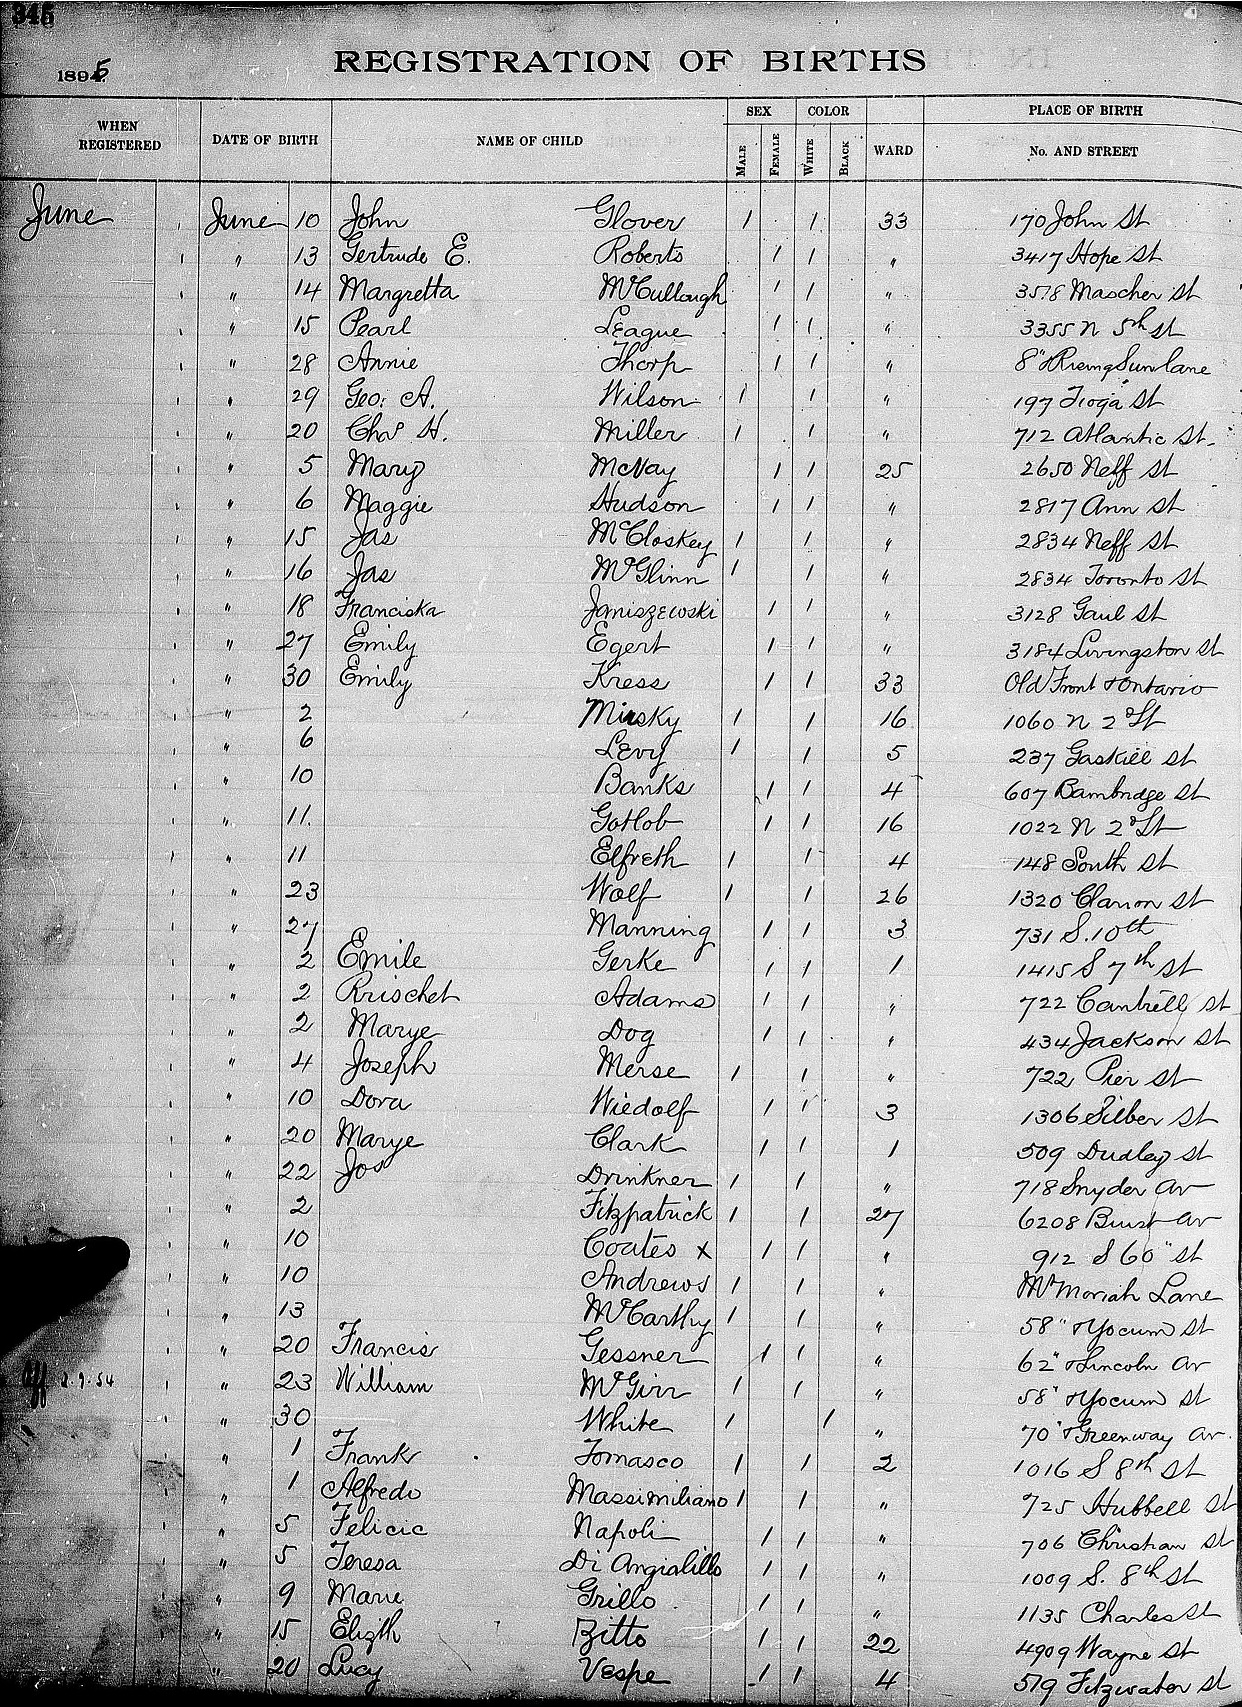 345
REGISTRATION OF BIRTHS
1895
WHEN REGISTERED DATE OF BIRTH NAME OF CHILD SEX COLOR WARD PLACE OF BIRTH
MALE FEMALE WHITE BLACK No. AND STREET
June 1 June 10 John Glover 1 1 33 170 John St
1 " 13 Gertrude E. Roberts 1 1 " 3417 Hope St
1 " 14 Margretta McCullough 1 1 " 3578 Mascher St
1 " 15 Pearl League 1 1 " 3355 N 5th St
1 " 28 Annie Thorp 1 1 " 8" & Rising Sun Lane
1 " 29 Geo. A. Wilson 1 1 " 197 Tioga St
1 " 20 Chas H. Miller 1 1 " 712 Atlantic St.
1 " 5 Mary McVay 1 1 25 2650 Neff St
1 " 6 Maggie Hudson 1 1 " 2817 Ann St
1 " 15 Jas McCloskey 1 1 " 2834 Neff St
1 " 16 Jas McGlinn 1 1 " 2834 Toronto St
1 " 18 Franciska Janiszewski 1 1 " 3128 Gaul St
1 " 27 Emily Egert 1 1 " 3184 Livingston St
1 " 30 Emily Kress 1 1 33 Old Front & Ontario
1 " 2 Mirsky 1 1 16 1060 N 2d St
1 " 6 Levy 1 1 5 237 Gaskill St
1 " 10 Banks 1 1 4 607 Bambridge St
1 " 11. Gotlob 1 1 16 1022 N 2d St
1 " 11 Elfreth 1 1 4 148 South St
1 " 23 Wolf 1 1 26 1320 Clarion St
1 " 27 Manning 1 1 3 731 S. 10th
1 " 2 Emile Gerke 1 1 1 1415 S 7th St
1 " 2 Rrischet Adams 1 1 " 722 Cantrell St
1 " 2 Marye Dog 1 1 " 434 Jackson St
1 " 4 Joseph Merse 1 1 " 722 Pier St
1 " 10 Dora Wiedolf 1 1 3 1306 Silber St
1 " 20 Marye Clark 1 1 1 509 Dudley St
1 " 22 Jos Drinkner 1 1 " 718 Snyder Av
1 " 2 Fitzpatrick 1 1 27 6208 Buist Av
1 " 10 Coates x 1 1 " 912 S 60" St
1 " 10 Andrews 1 1 " Mt Moriah Lane
1 " 13 McCarthy 1 1 " 58" & Yocum St
1 " 20 Francis Gessner 1 1 " 62" & Lincoln Av
2.9.54 1 " 23 William McGirr 1 1 " 58" & Yocum St
1 " 30 White 1 1 " 70" & Greenway Av.
1 " 1 Frank Tomasco 1 1 2 1016 S 8th St
1 " 1 Alfredo Massimiliano 1 1 " 725 Hubbell St
1 " 5 Felicic Napoli 1 1 " 706 Christian St
1 " 5 Teresa Di Angialillo 1 1 " 1009 S. 8th St
1 " 9 Marie Grillo 1 1 " 1135 Charles St
1 " 15 Elizth Bitto 1 1 22 4909 Wayne St
1 " 20 Lucy Vespe 1 1 4 519 Fitzwater St